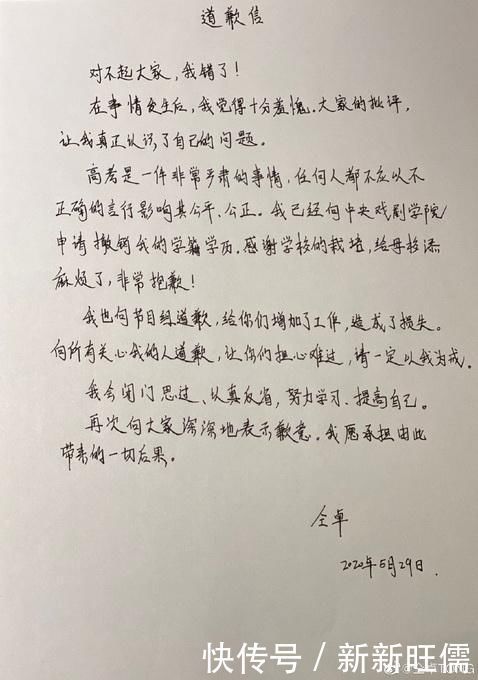 道歉信
对不起大家，我错了！
在事情发生后，我觉得十分羞愧。大家的批评，
让我真正认识了自己的问题。
高考是一件非常严肃的事情，任何人都不应以不
正确的言行影响其公平、公正。我已经向中央戏剧学院
申请撤销我的学籍学历，感谢学校的栽培，给母校添
麻烦了，非常抱歉！
我也向节目组道歉，给你们增加了工作，造成了损失。
向所有关心我的人道歉，让你们担心难过，请一定以我为戒。
我会闭门思过、认真反省，努力学习、提高自己。
再次向大家深深地表示歉意。我愿承担由此
带来的一切后果。
仝卓
2020年5月29日.
快传号／新新旺儒